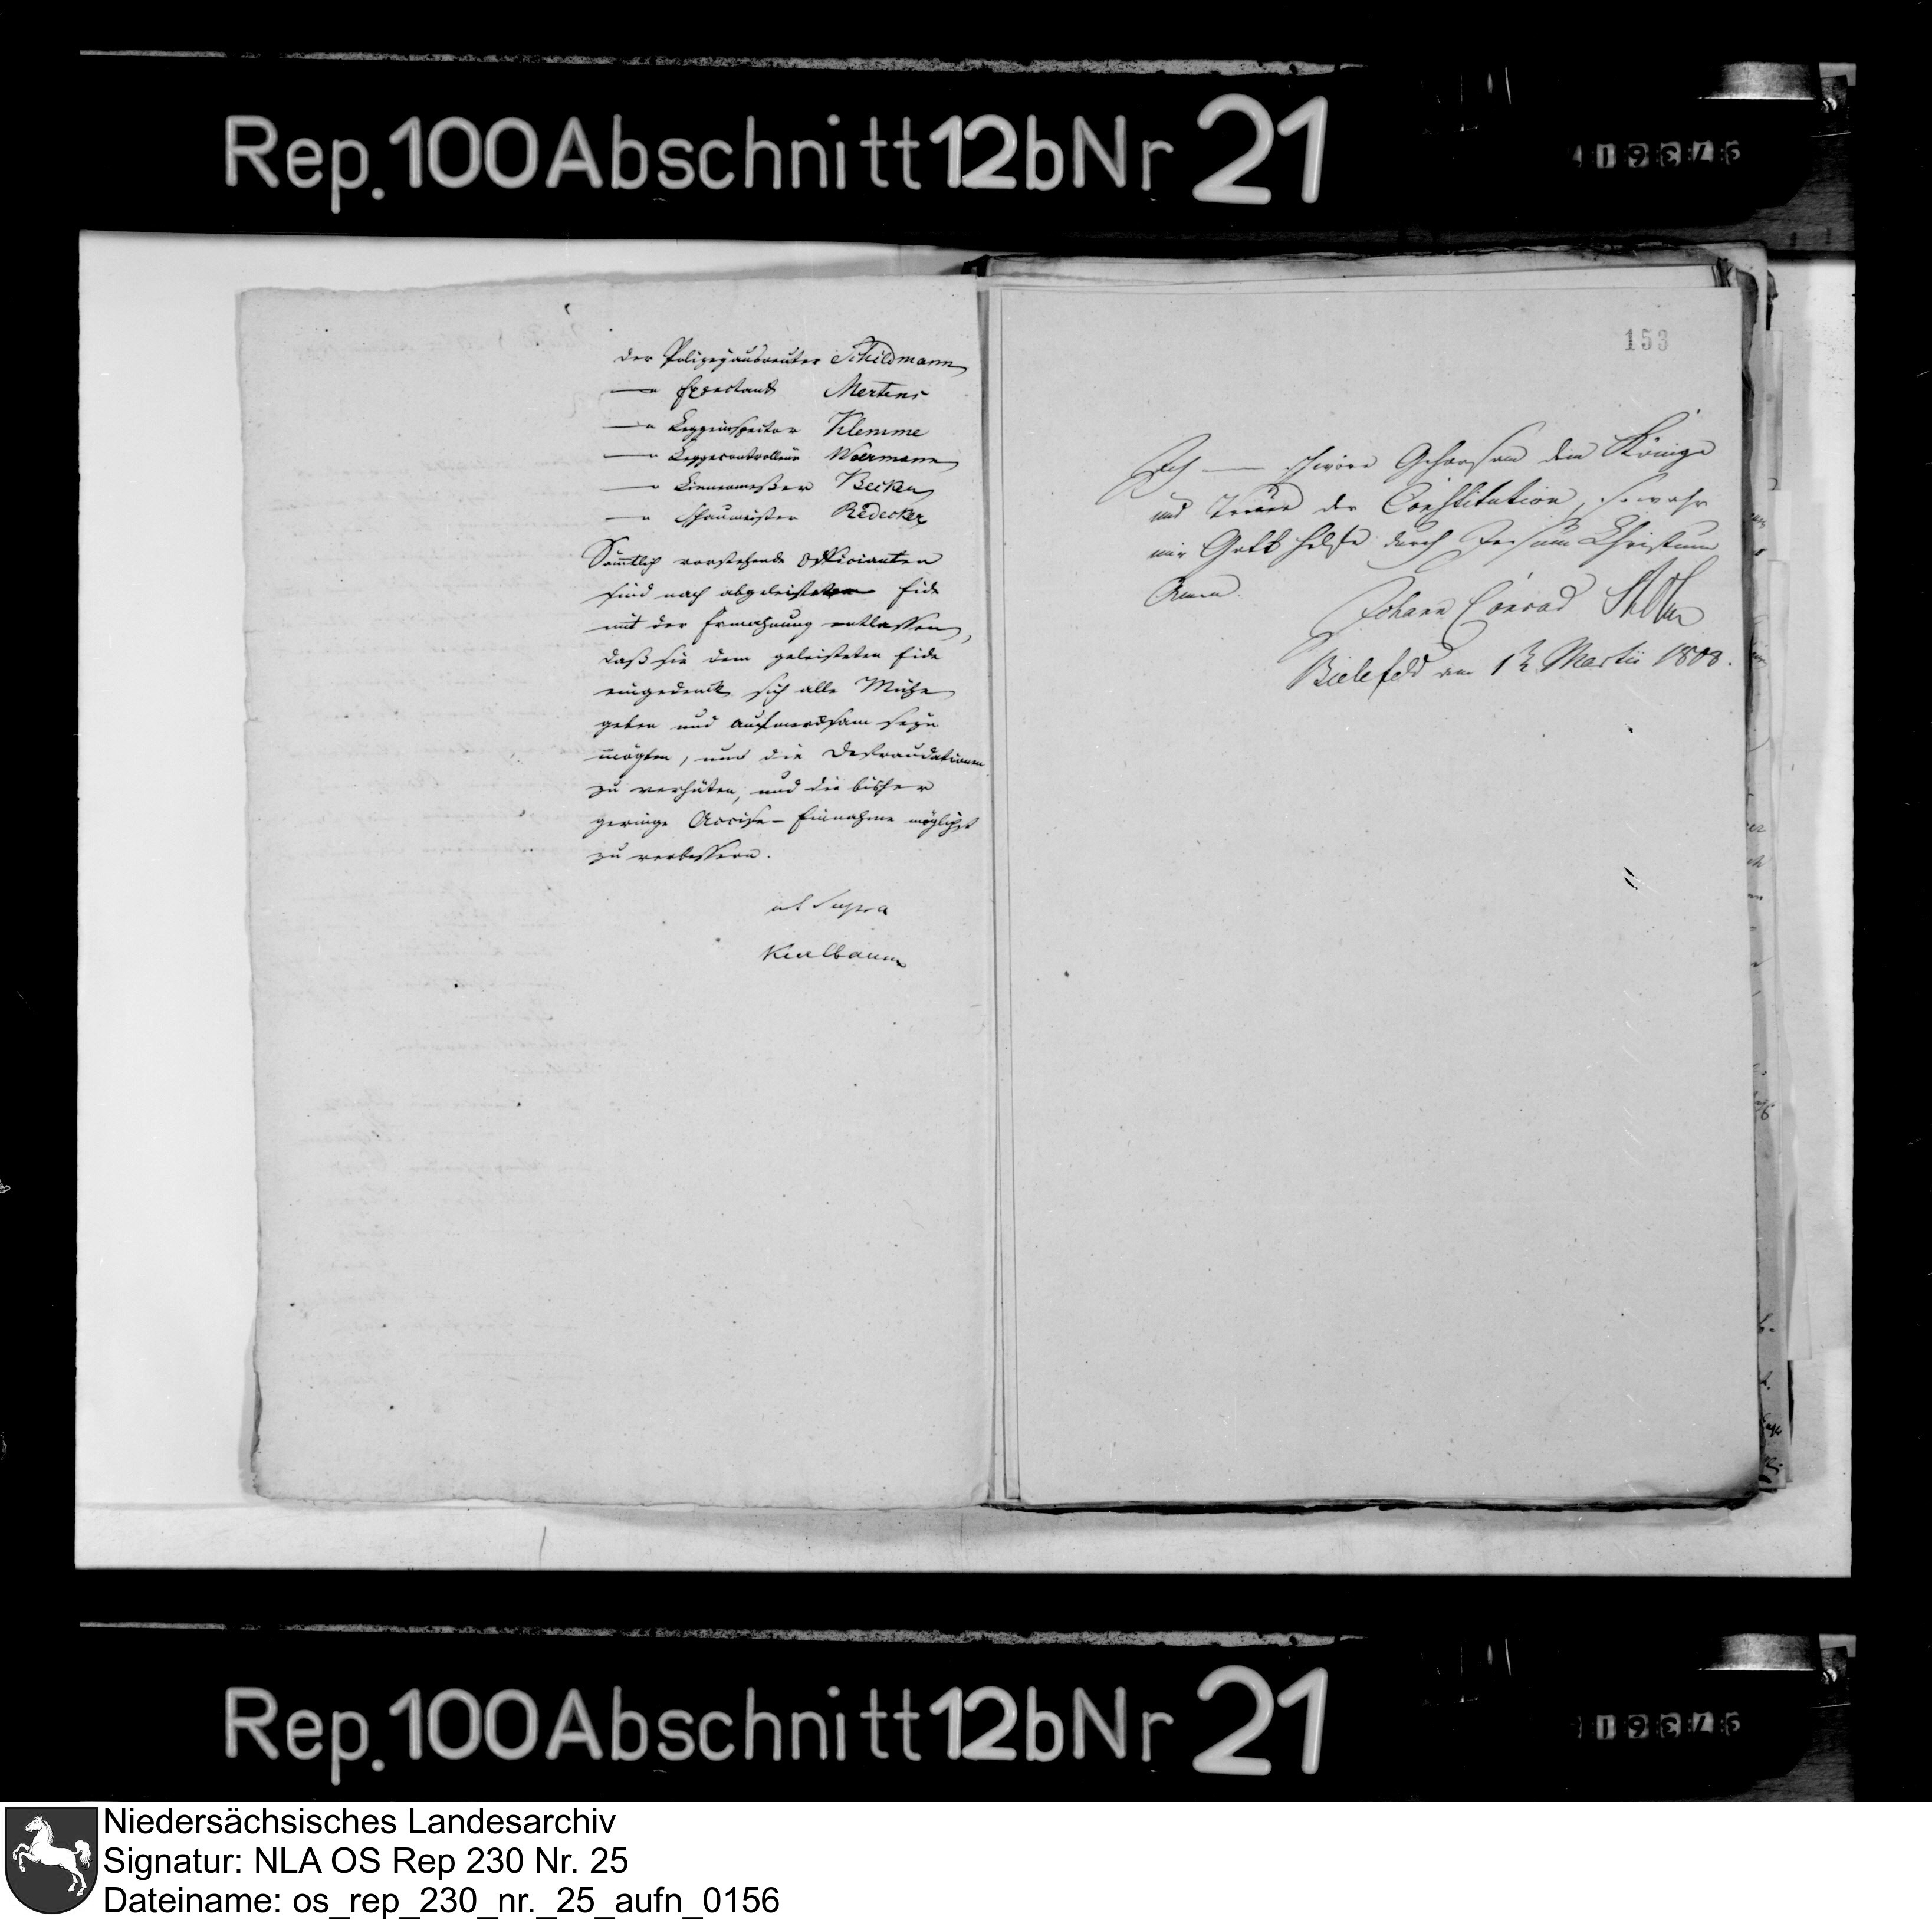 Rep. 100 Abschnitt 12b Nr 21
der Polizeyausreuter Schildmann
— " Expectant Mertens
— " Leggeinspector Klemme
— " Leggecontrolleur Woermann
— " Linnenmeßer Becker
— " Schaumeister Redecker
Sämtlich vorstehende Officianten
sind nach abgeleisteten Eide
mit der Ermahnung entlassen,
daß sie dem geleisteten Eide
eingedenk sich alle Mühe
geben und aufmerksam seyn
mögten, um die Defraudationen
zu verhüten, und die bisher
geringe Accise-Einnahme möglichst
zu verbessern.
ut Supra
153
Ich — schwöre Gehorsam dem Könige
und Treue der Constitution, so wahr
mir Gott helfe durch Jesum Christum
Amen.
Johann Conrad
Bielefeld am Martii 1808.
Rep. 100 Abschnitt 12b Nr 21
Niedersächsisches Landesarchiv
Signatur: NLA OS Rep 230 Nr. 25
Dateiname: os_rep_230_nr._25_aufn_0156